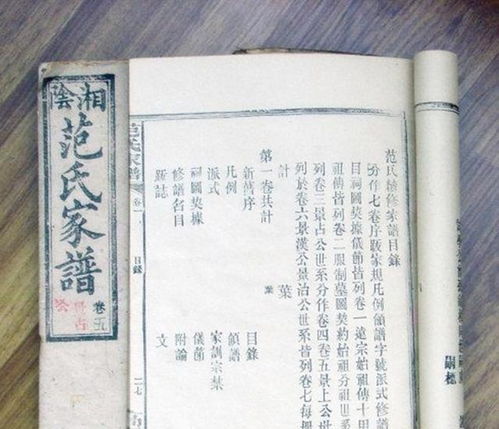 湘陰
范氏家譜
卷五
景占
公
范氏續修家譜目錄
分作七卷序跋家規凡例領譜字號派式修譜
目祠圖契據儀節皆列卷一遠宗始祖傳十甲
祖傳皆列卷二服制墓圖契約始祖分祖世系
列卷三景占公世系分作卷四卷五景上公世
列於卷六景漢公景治公世系皆列卷七每
計 葉
第一卷共計 葉
新舊序 目錄
凡例 領譜
派式 家訓宗禁
祠圖契據 儀節
修譜名目 附論
雜誌 文
范氏家譜 卷一 目錄 二七
嗣標